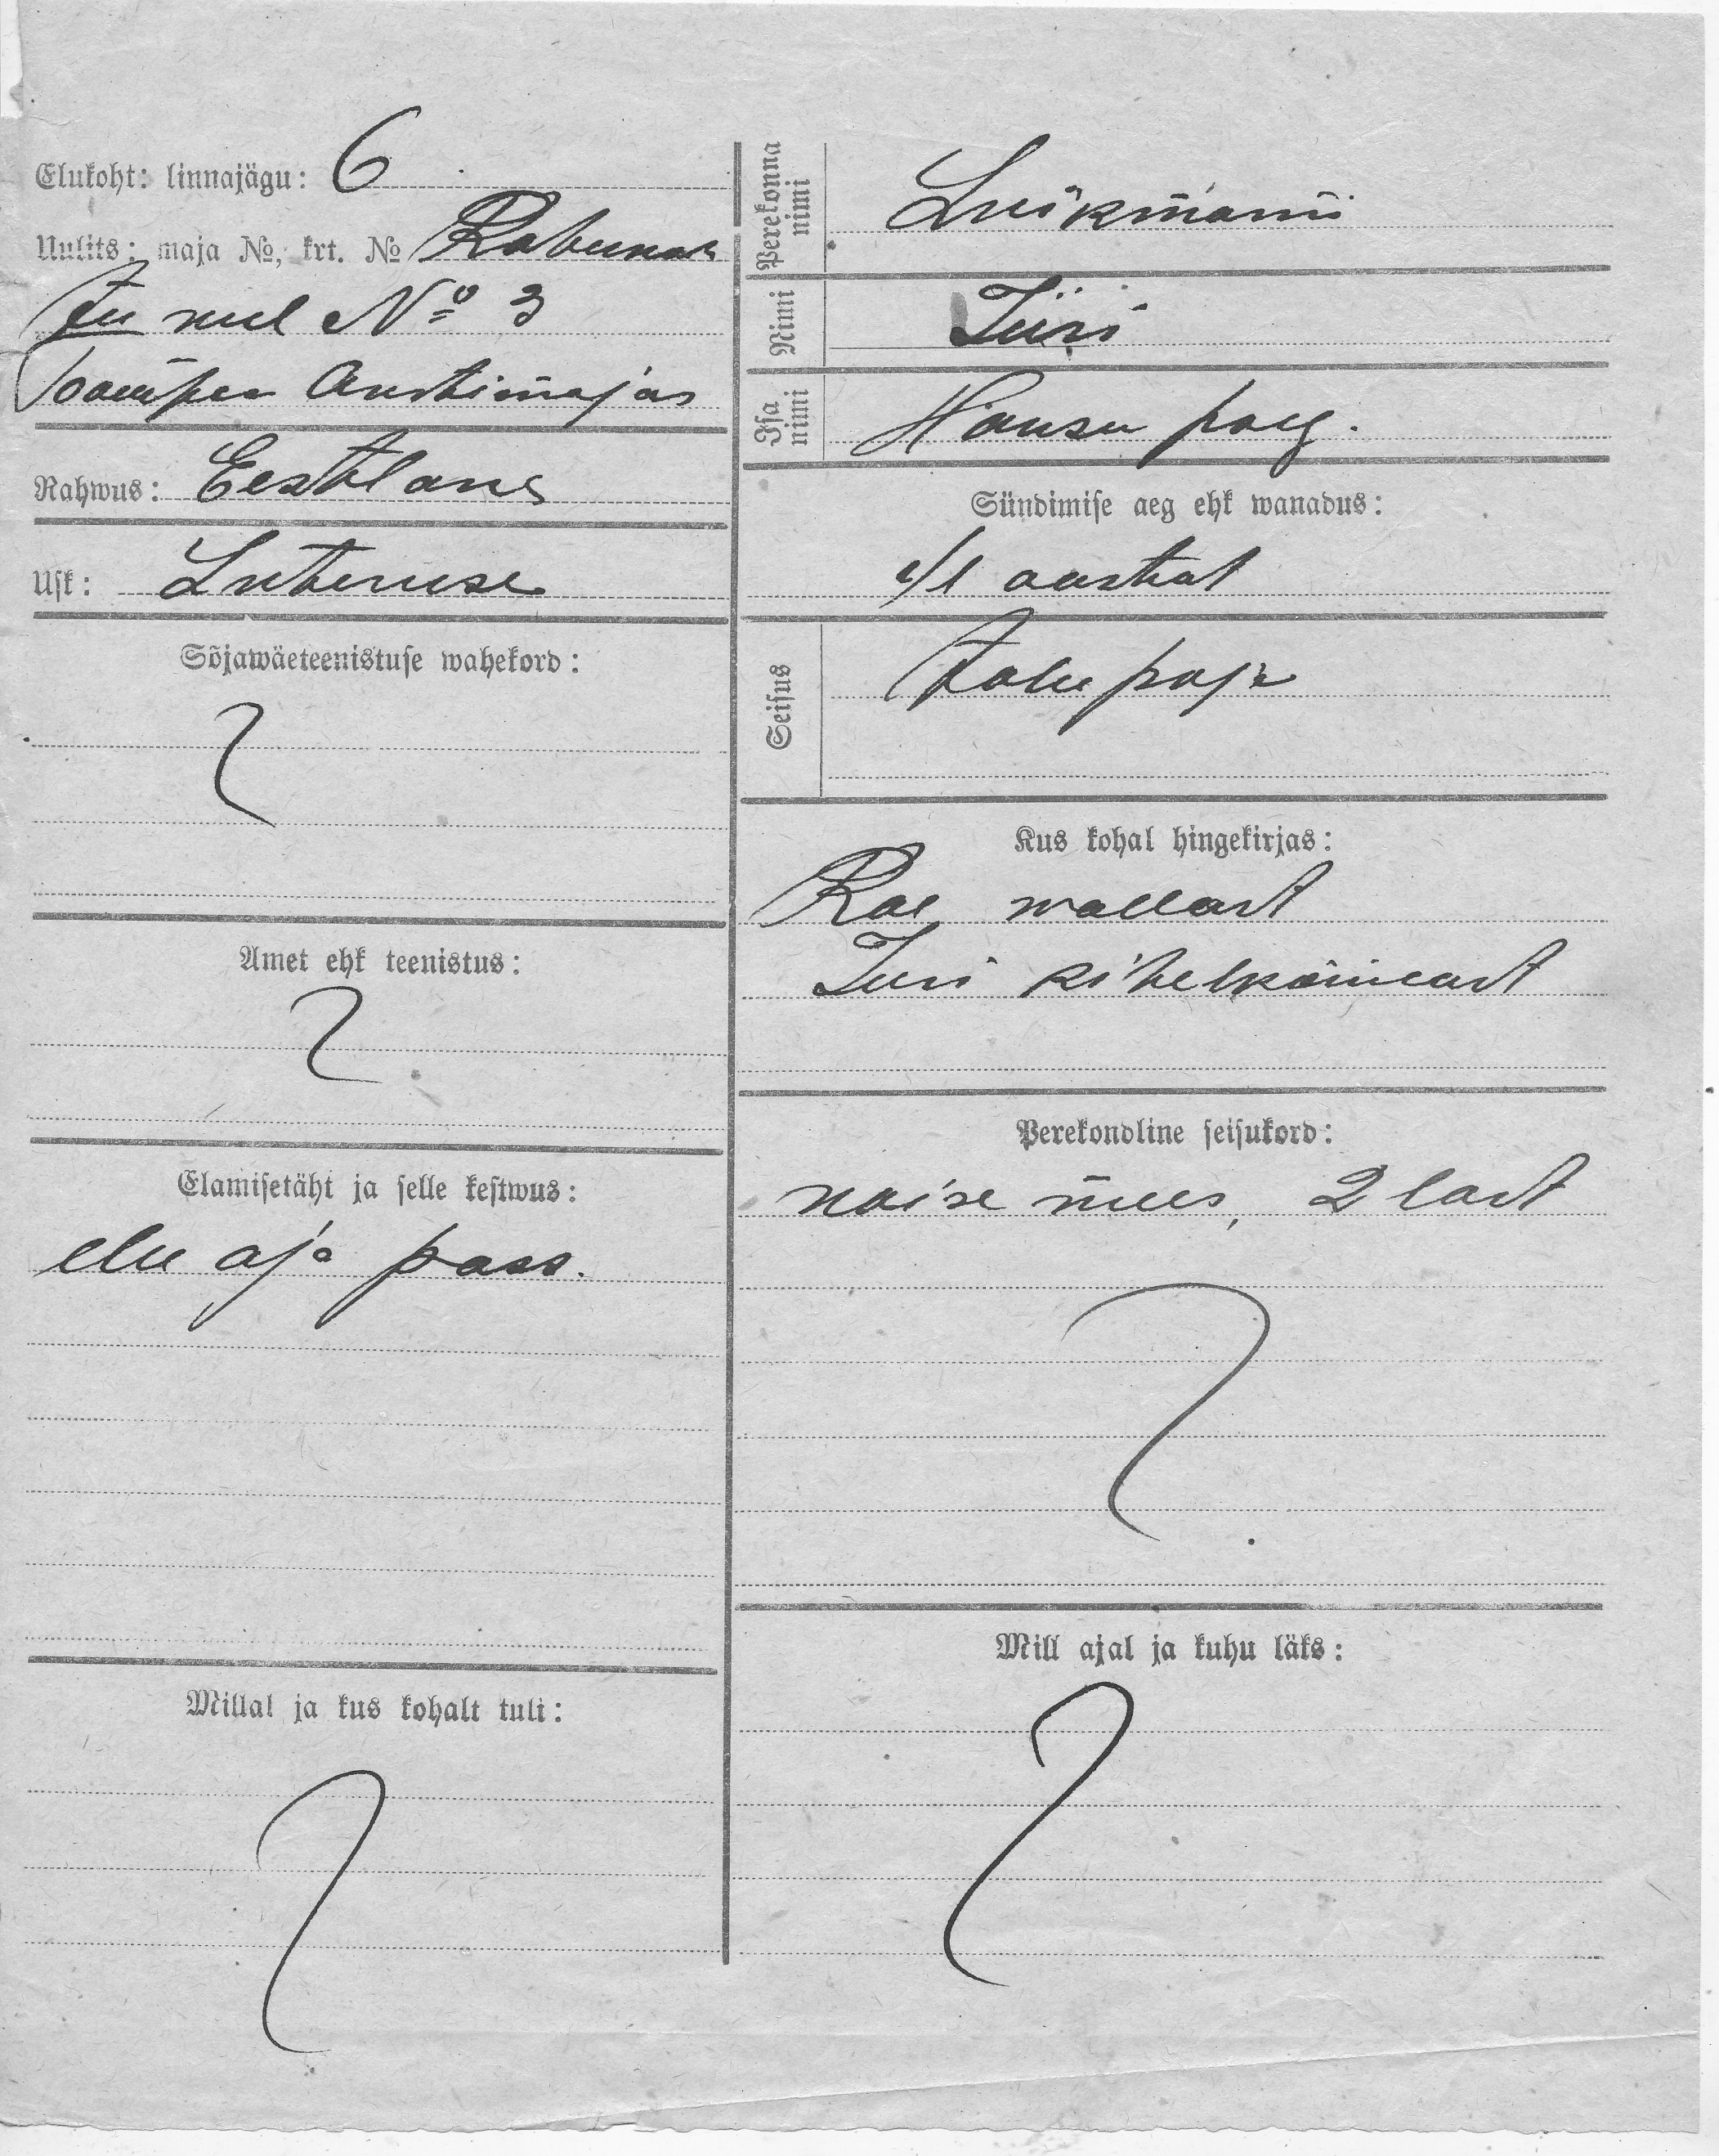 Elukoht: linnajägu: 6
Uulits: maja №, krt. №
№ 3
Rahwus: Eestlane
Usk: Luteruse
Sõjawäeteenistuse wahekord:
Amet ehk teenistus:
Elamisetäht ja selle kestwus:
elu aja pass.
Millal ja kus kohalt tuli:
Perekonna nimi Luikmann
Nimi Jüri
Isa nimi Hansu poeg.
Sündimise aeg ehk wanadus:
41 aastat
Seisus Talupoja
Kus kohal hingekirjas:
Rae wallast
Juri kihelkonnast
Perekondline seisukord:
naise mees, 2 last
Mill ajal ja kuhu läks: